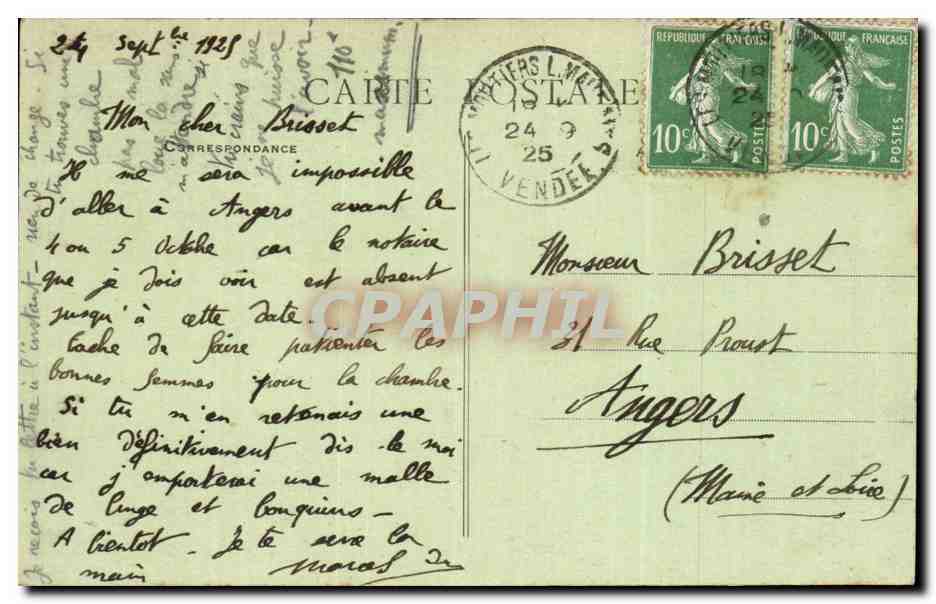 24 Septbre 1925
CARTE POSTALE
Mon cher Brisset
CORRESPONDANCE
Il me sera impossible
d'aller à Angers avant le
4 ou 5 Octobre car le notaire
que je dois voir est absent
jusqu'à cette date.
Tache de faire patienter les
bonnes femmes pour la chambre.
Si tu m'en retenais une
bien définitivement dis-le moi
car j'emporterai une malle
de linge et bouquins –
A bientot. Je te serre la
main
Je reçois ta lettre à l'instant – rien de changé. Si
tu trouves une
chambre
pas mal
pour la
je
Vrais que
je puisse
savoir
110
maximum
MOUTIERS L. MAUXFAITS
18
24 - 9
25
VENDEE
REPUBLIQUE FRANÇAISE
10c
POSTES
REPUBLIQUE FRANÇAISE
10c
POSTES
18
24
25
Monsieur Brisset
31 Rue Proust
Angers
(Maine et Loire)
CPAPHIL